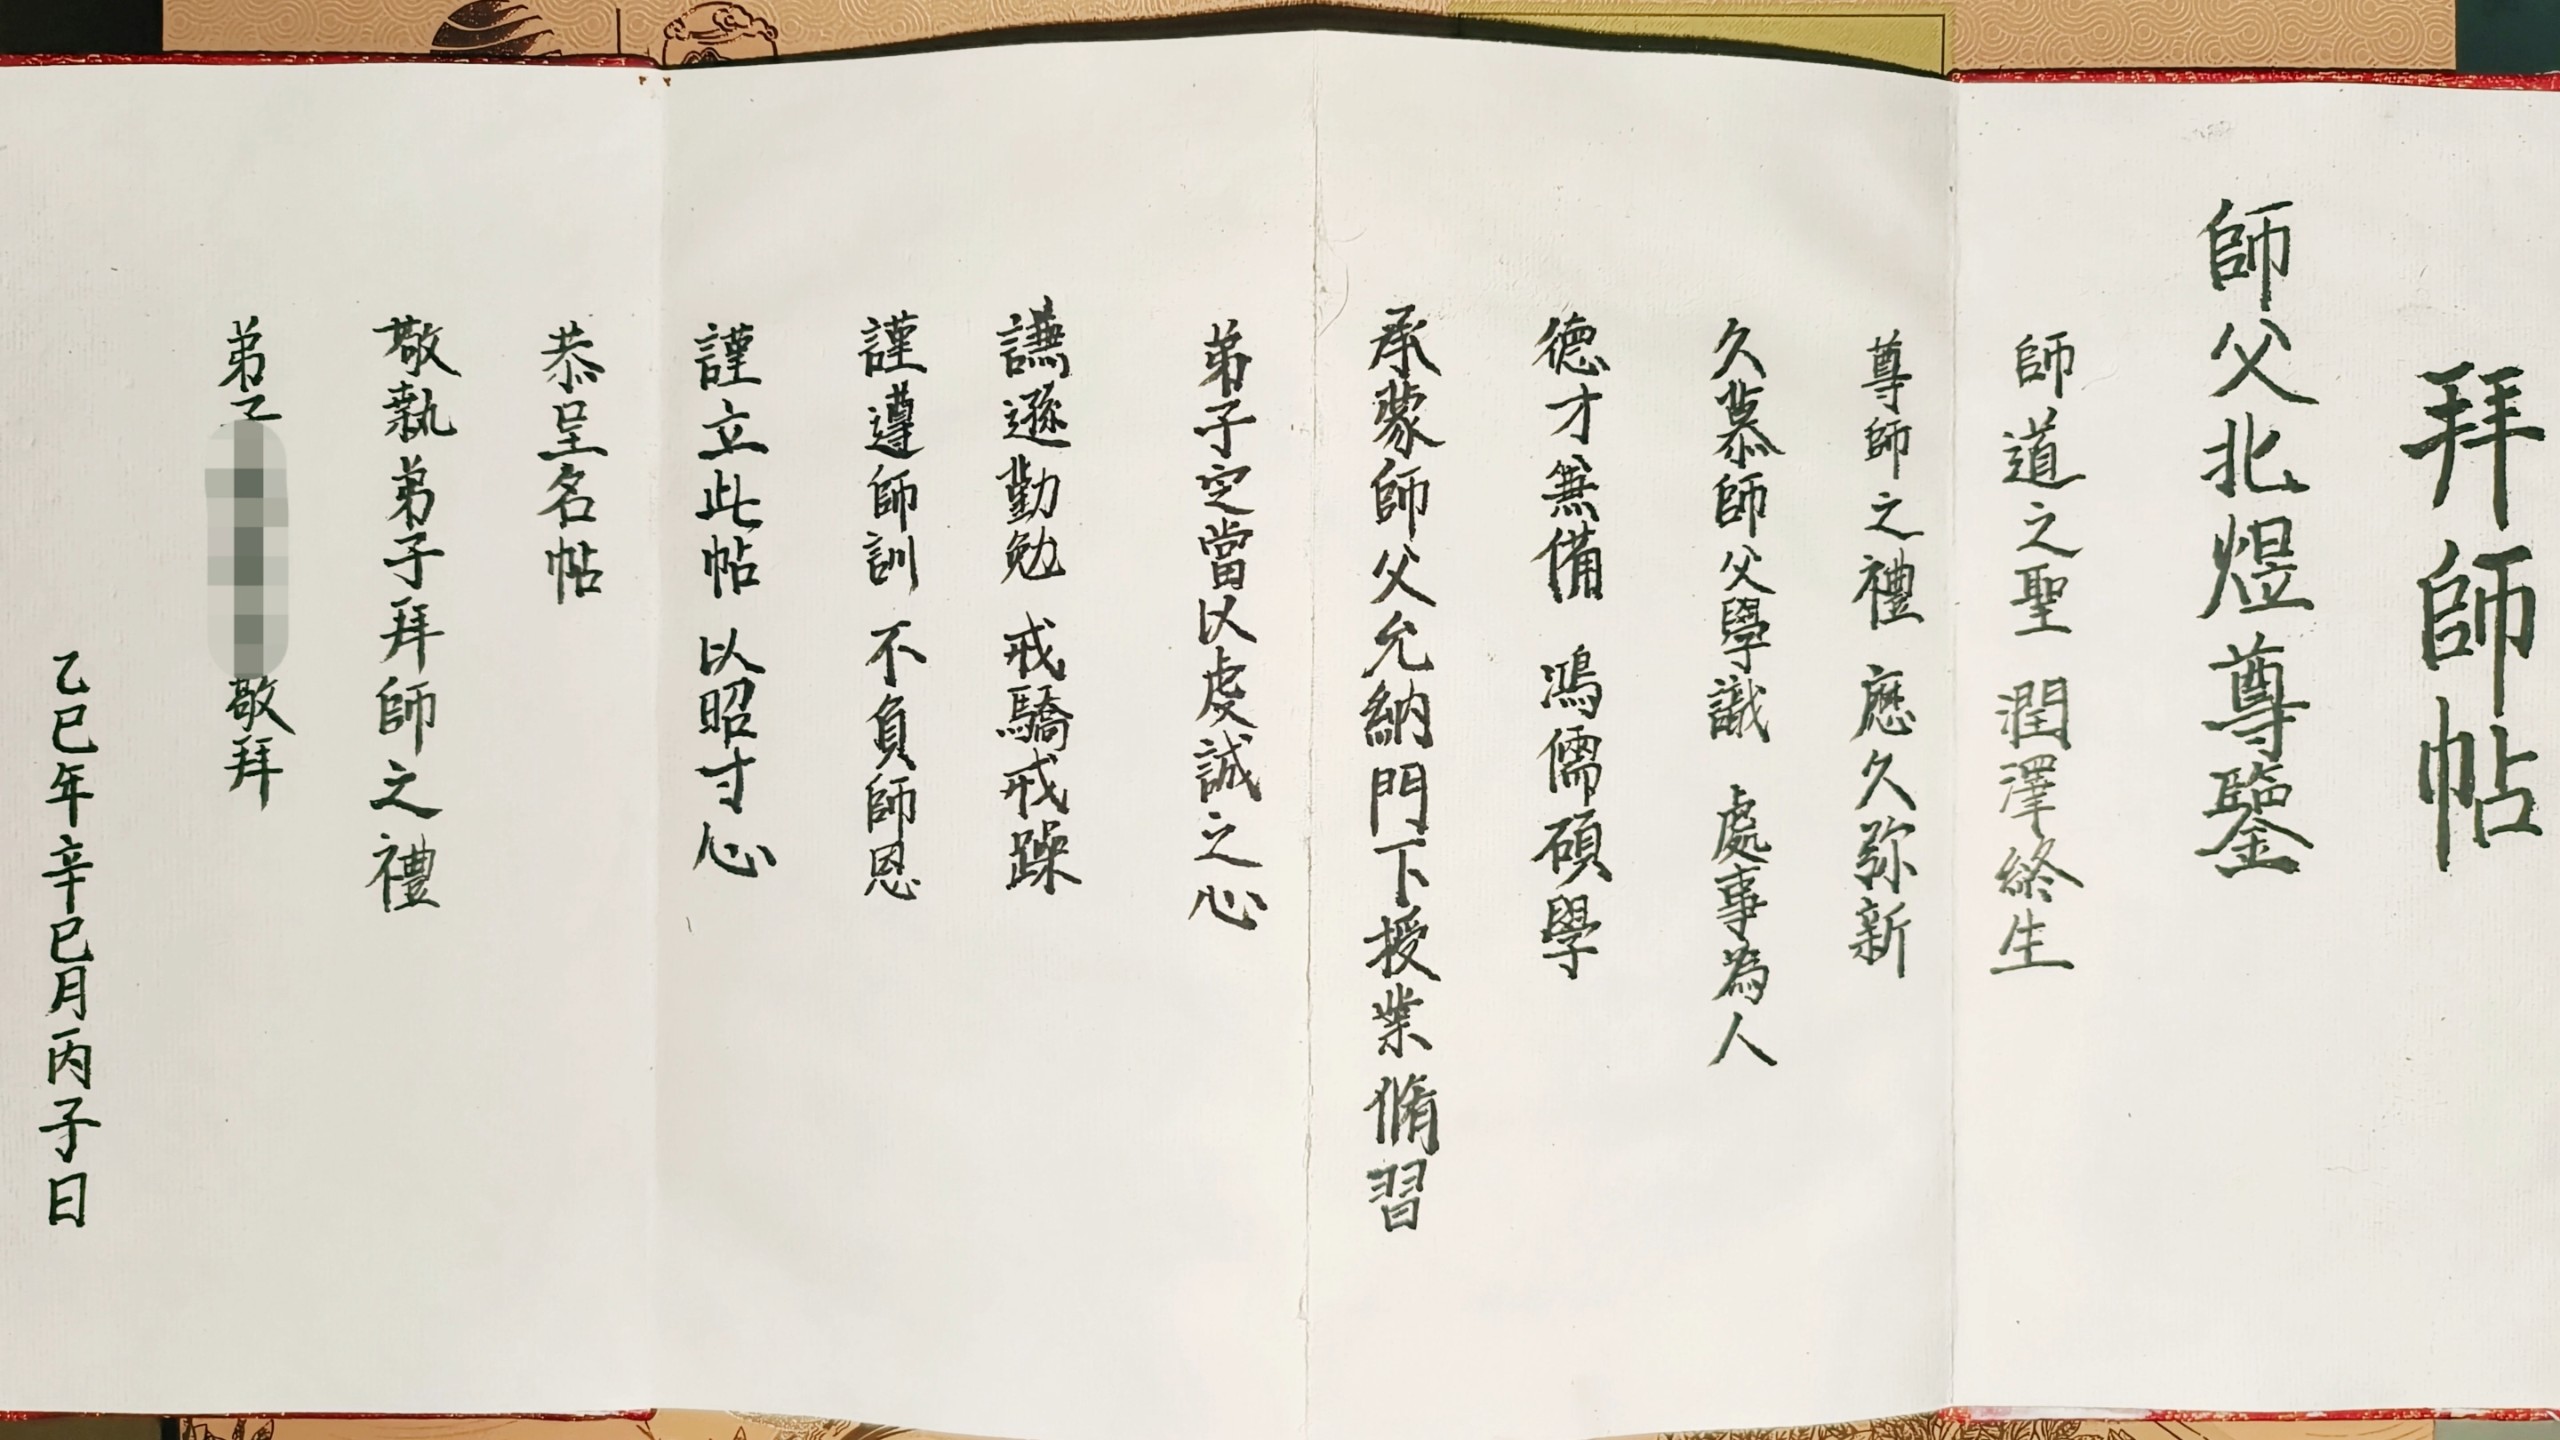 拜師帖
師父北煜尊鑒
師道之聖 潤澤終生
尊師之禮 應久弥新
久慕師父學識 處事為人
德才兼備 鴻儒碩學
承蒙師父允納門下授業 脩習
弟子定當以虔誠之心
謙遜勤勉 戒驕戒躁
謹遵師訓 不負師恩
謹立此帖 以昭寸心
恭呈名帖
敬執弟子拜師之禮
弟子 敬拜
乙巳年辛巳月丙子日